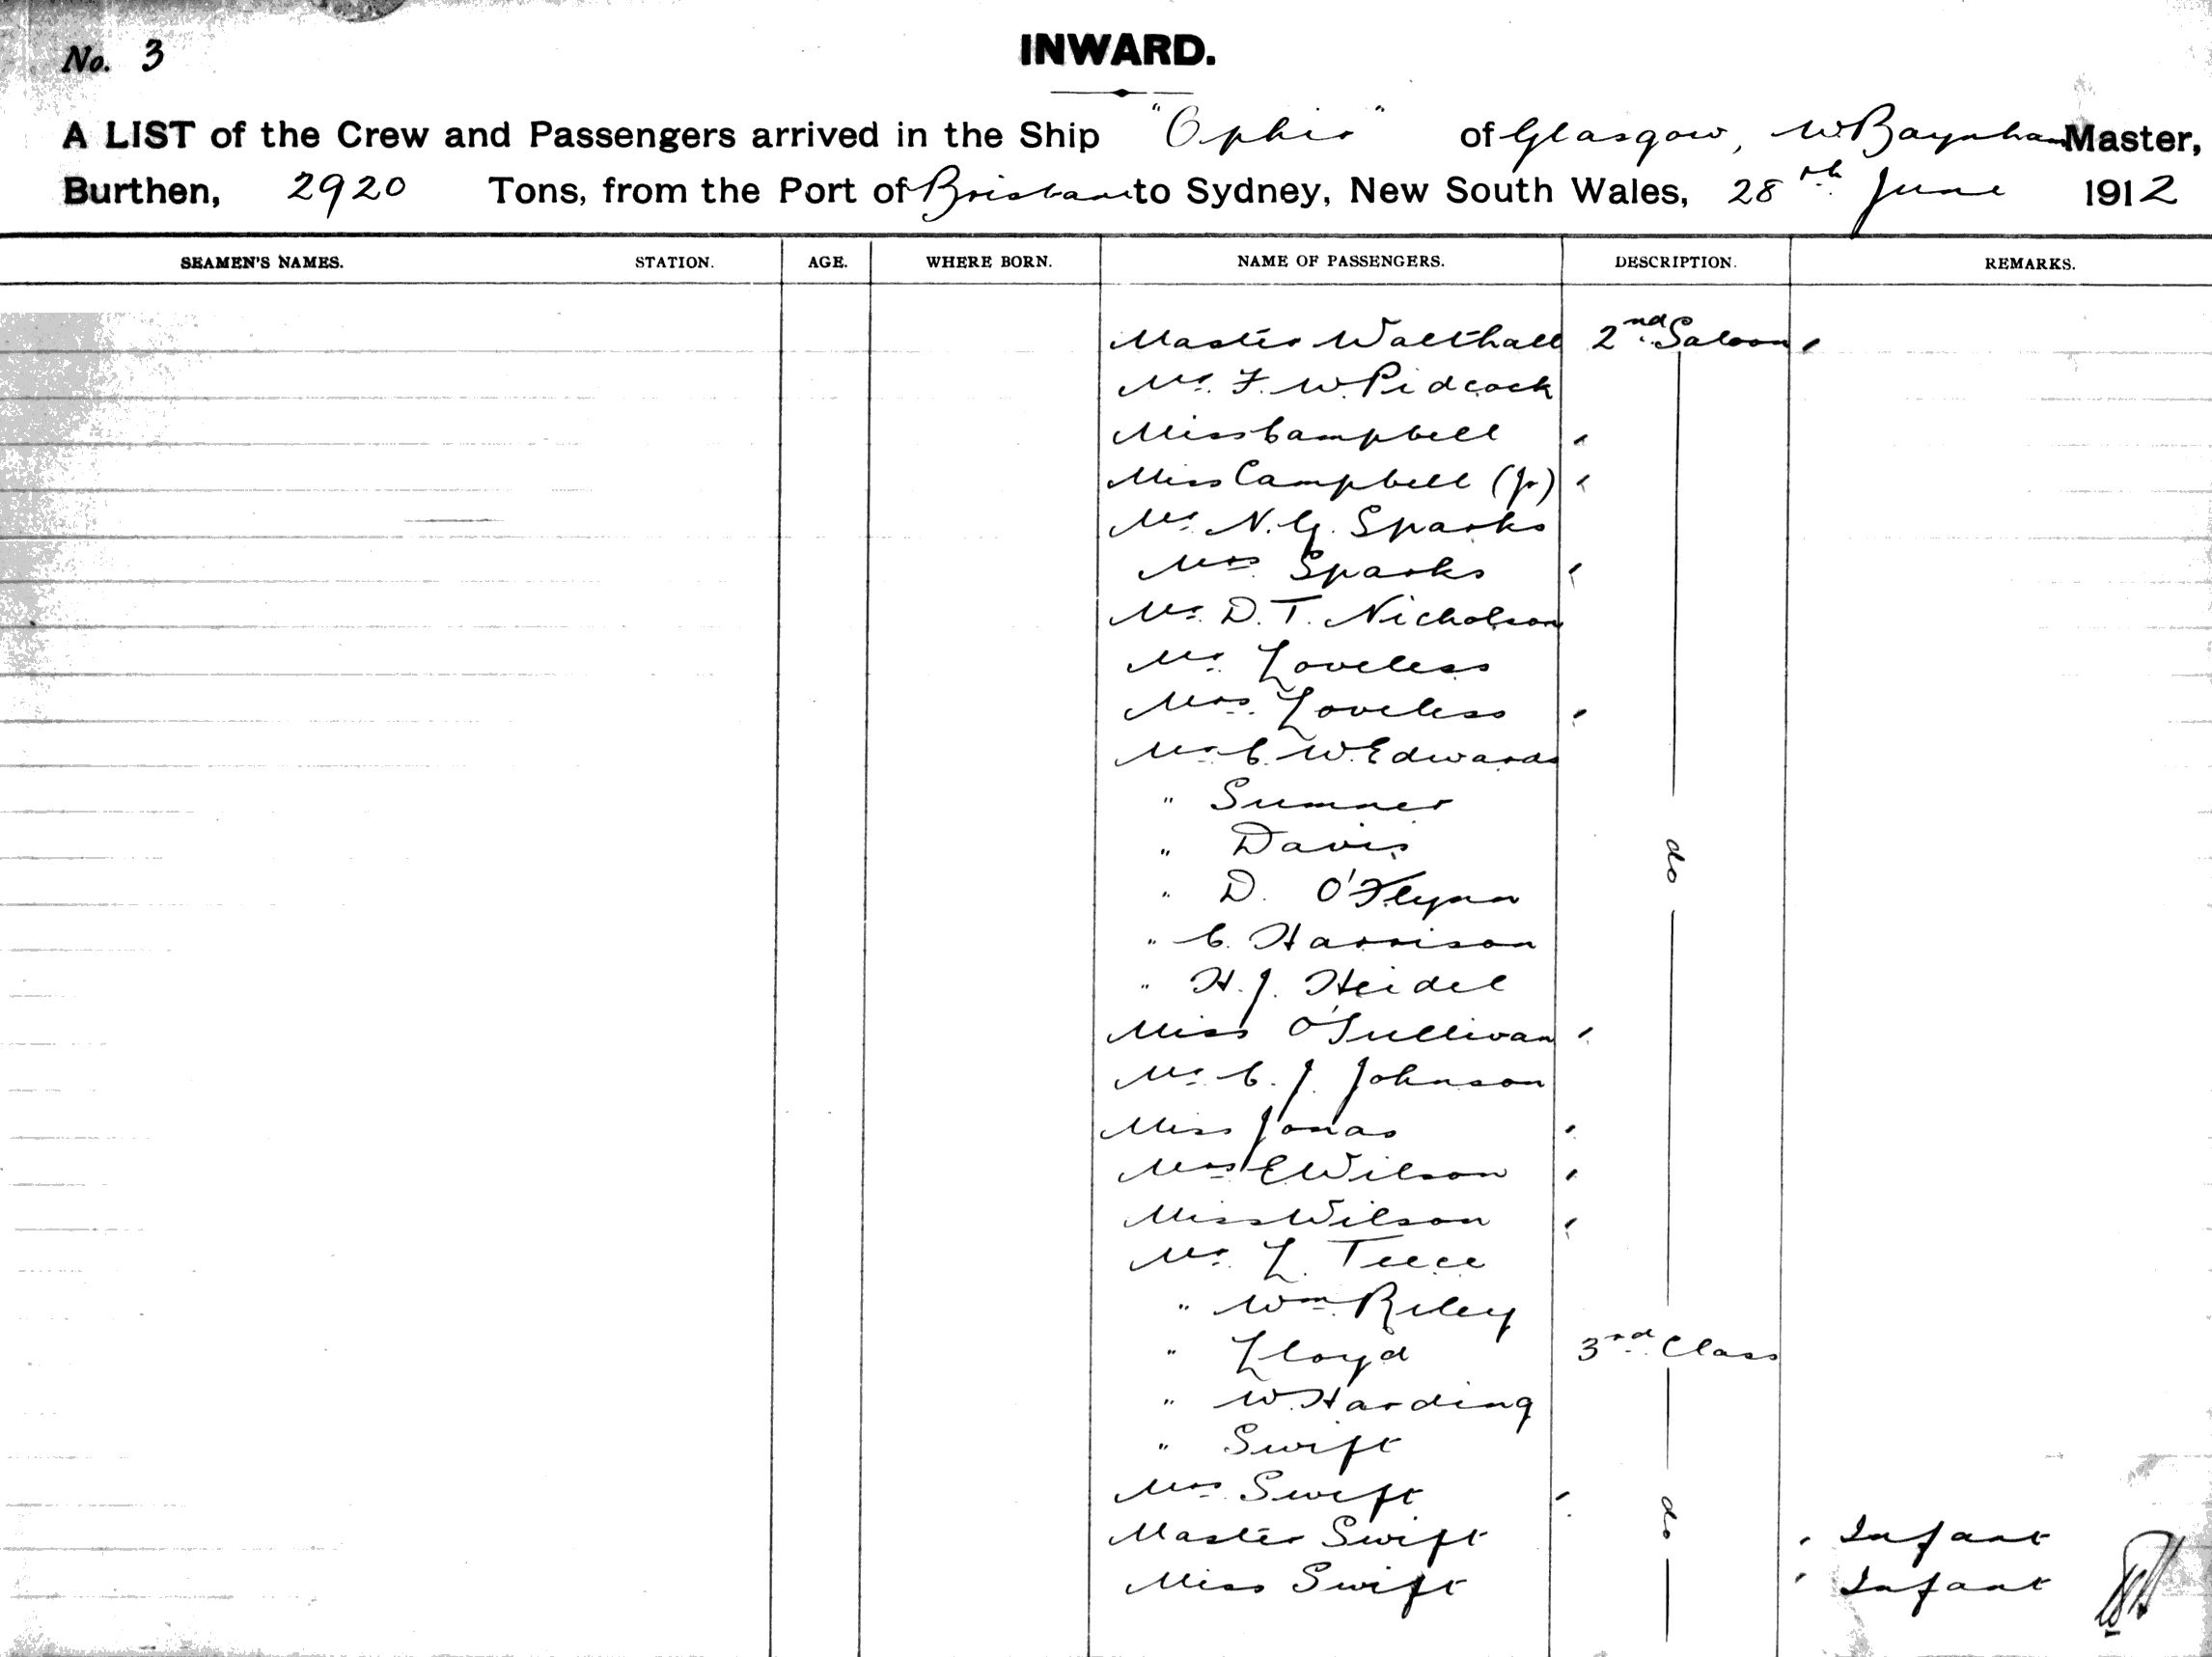 No. 3
INWARD.
A LIST of the Crew and Passengers arrived in the Ship "Ophir" of Glasgow, W Baynham Master,
Burthen, 2920 Tons, from the Port of Brisbane to Sydney, New South Wales, 28th June 1912
SEAMEN'S NAMES. STATION. AGE. WHERE BORN. NAME OF PASSENGERS. DESCRIPTION. REMARKS.
Master Walthall 2nd Saloon
Mr. F. W. Pidcock
Miss Campbell
Miss Campbell (Jr)
Mr N. G. Sparks
Mrs Sparks
Mr. D. T. Nicholson
Mr. Loveless
Mrs. Loveless
Mr C. W. Edwards
" Sumner
" Davis do
" D. O'Flynn
" C. Harrison
" H. J. Heidel
Miss O'Sullivan
Mr C. J. Johnson
Miss Jonas
Mrs E Wilson
Miss Wilson
Mr. L. Teece
" Wm Riley
" Lloyd 3rd Class
" W. Harding
" Swift
Mrs Swift do
Master Swift Infant
Miss Swift Infant